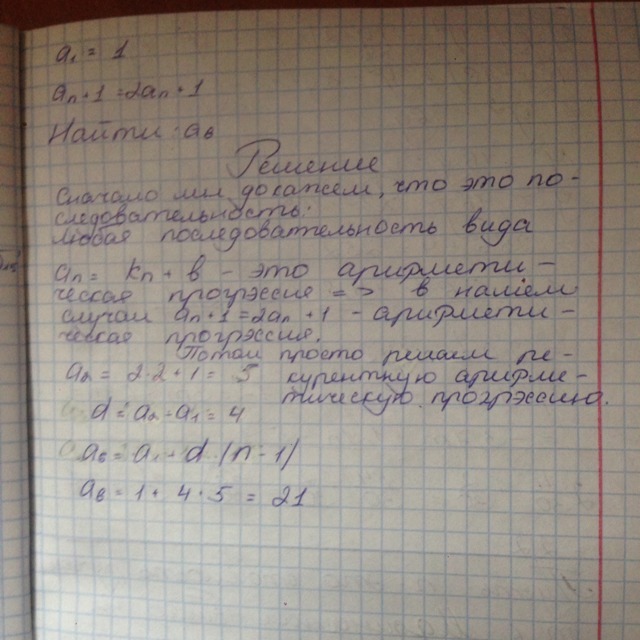 a₁ = 1
aₙ+1 = 2aₙ + 1
Найти: a₆
Решение
Сначало мы докажем, что это по-
следовательность:
любая последовательность вида
aₙ = kₙ + в - это арифмети-
ческая прогрэссия => в нашем
случаи aₙ+1 = 2aₙ + 1 - арифмети-
ческая прогрэссия.
Потом просто решаем ре-
курентную арифме-
тическую прогрэссию.
a₂ = 2·2+1 = 5
d = a₂ - a₁ = 4
a₆ = a₁ + d·(n-1)
a₆ = 1 + 4·5 = 21